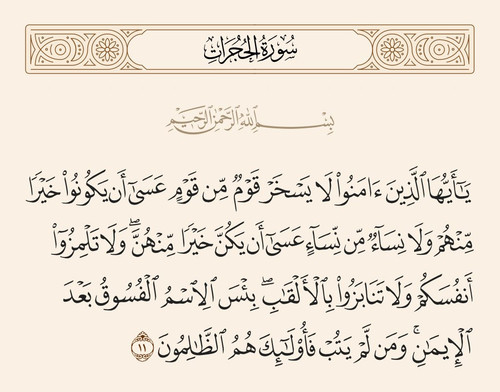 سُورَةُ الحُجُرَاتِ
بِسْمِ ٱللَّهِ ٱلرَّحْمَٰنِ ٱلرَّحِيمِ
يَٰٓأَيُّهَا ٱلَّذِينَ ءَامَنُوا۟ لَا يَسْخَرْ قَوْمٌ مِّن قَوْمٍ عَسَىٰٓ أَن يَكُونُوا۟ خَيْرًا
مِّنْهُمْ وَلَا نِسَآءٌ مِّن نِّسَآءٍ عَسَىٰٓ أَن يَكُنَّ خَيْرًا مِّنْهُنَّ ۖ وَلَا تَلْمِزُوٓا۟
أَنفُسَكُمْ وَلَا تَنَابَزُوا۟ بِٱلْأَلْقَٰبِ ۖ بِئْسَ ٱلِٱسْمُ ٱلْفُسُوقُ بَعْدَ
ٱلْإِيمَٰنِ ۚ وَمَن لَّمْ يَتُبْ فَأُو۟لَٰٓئِكَ هُمُ ٱلظَّٰلِمُونَ ١١